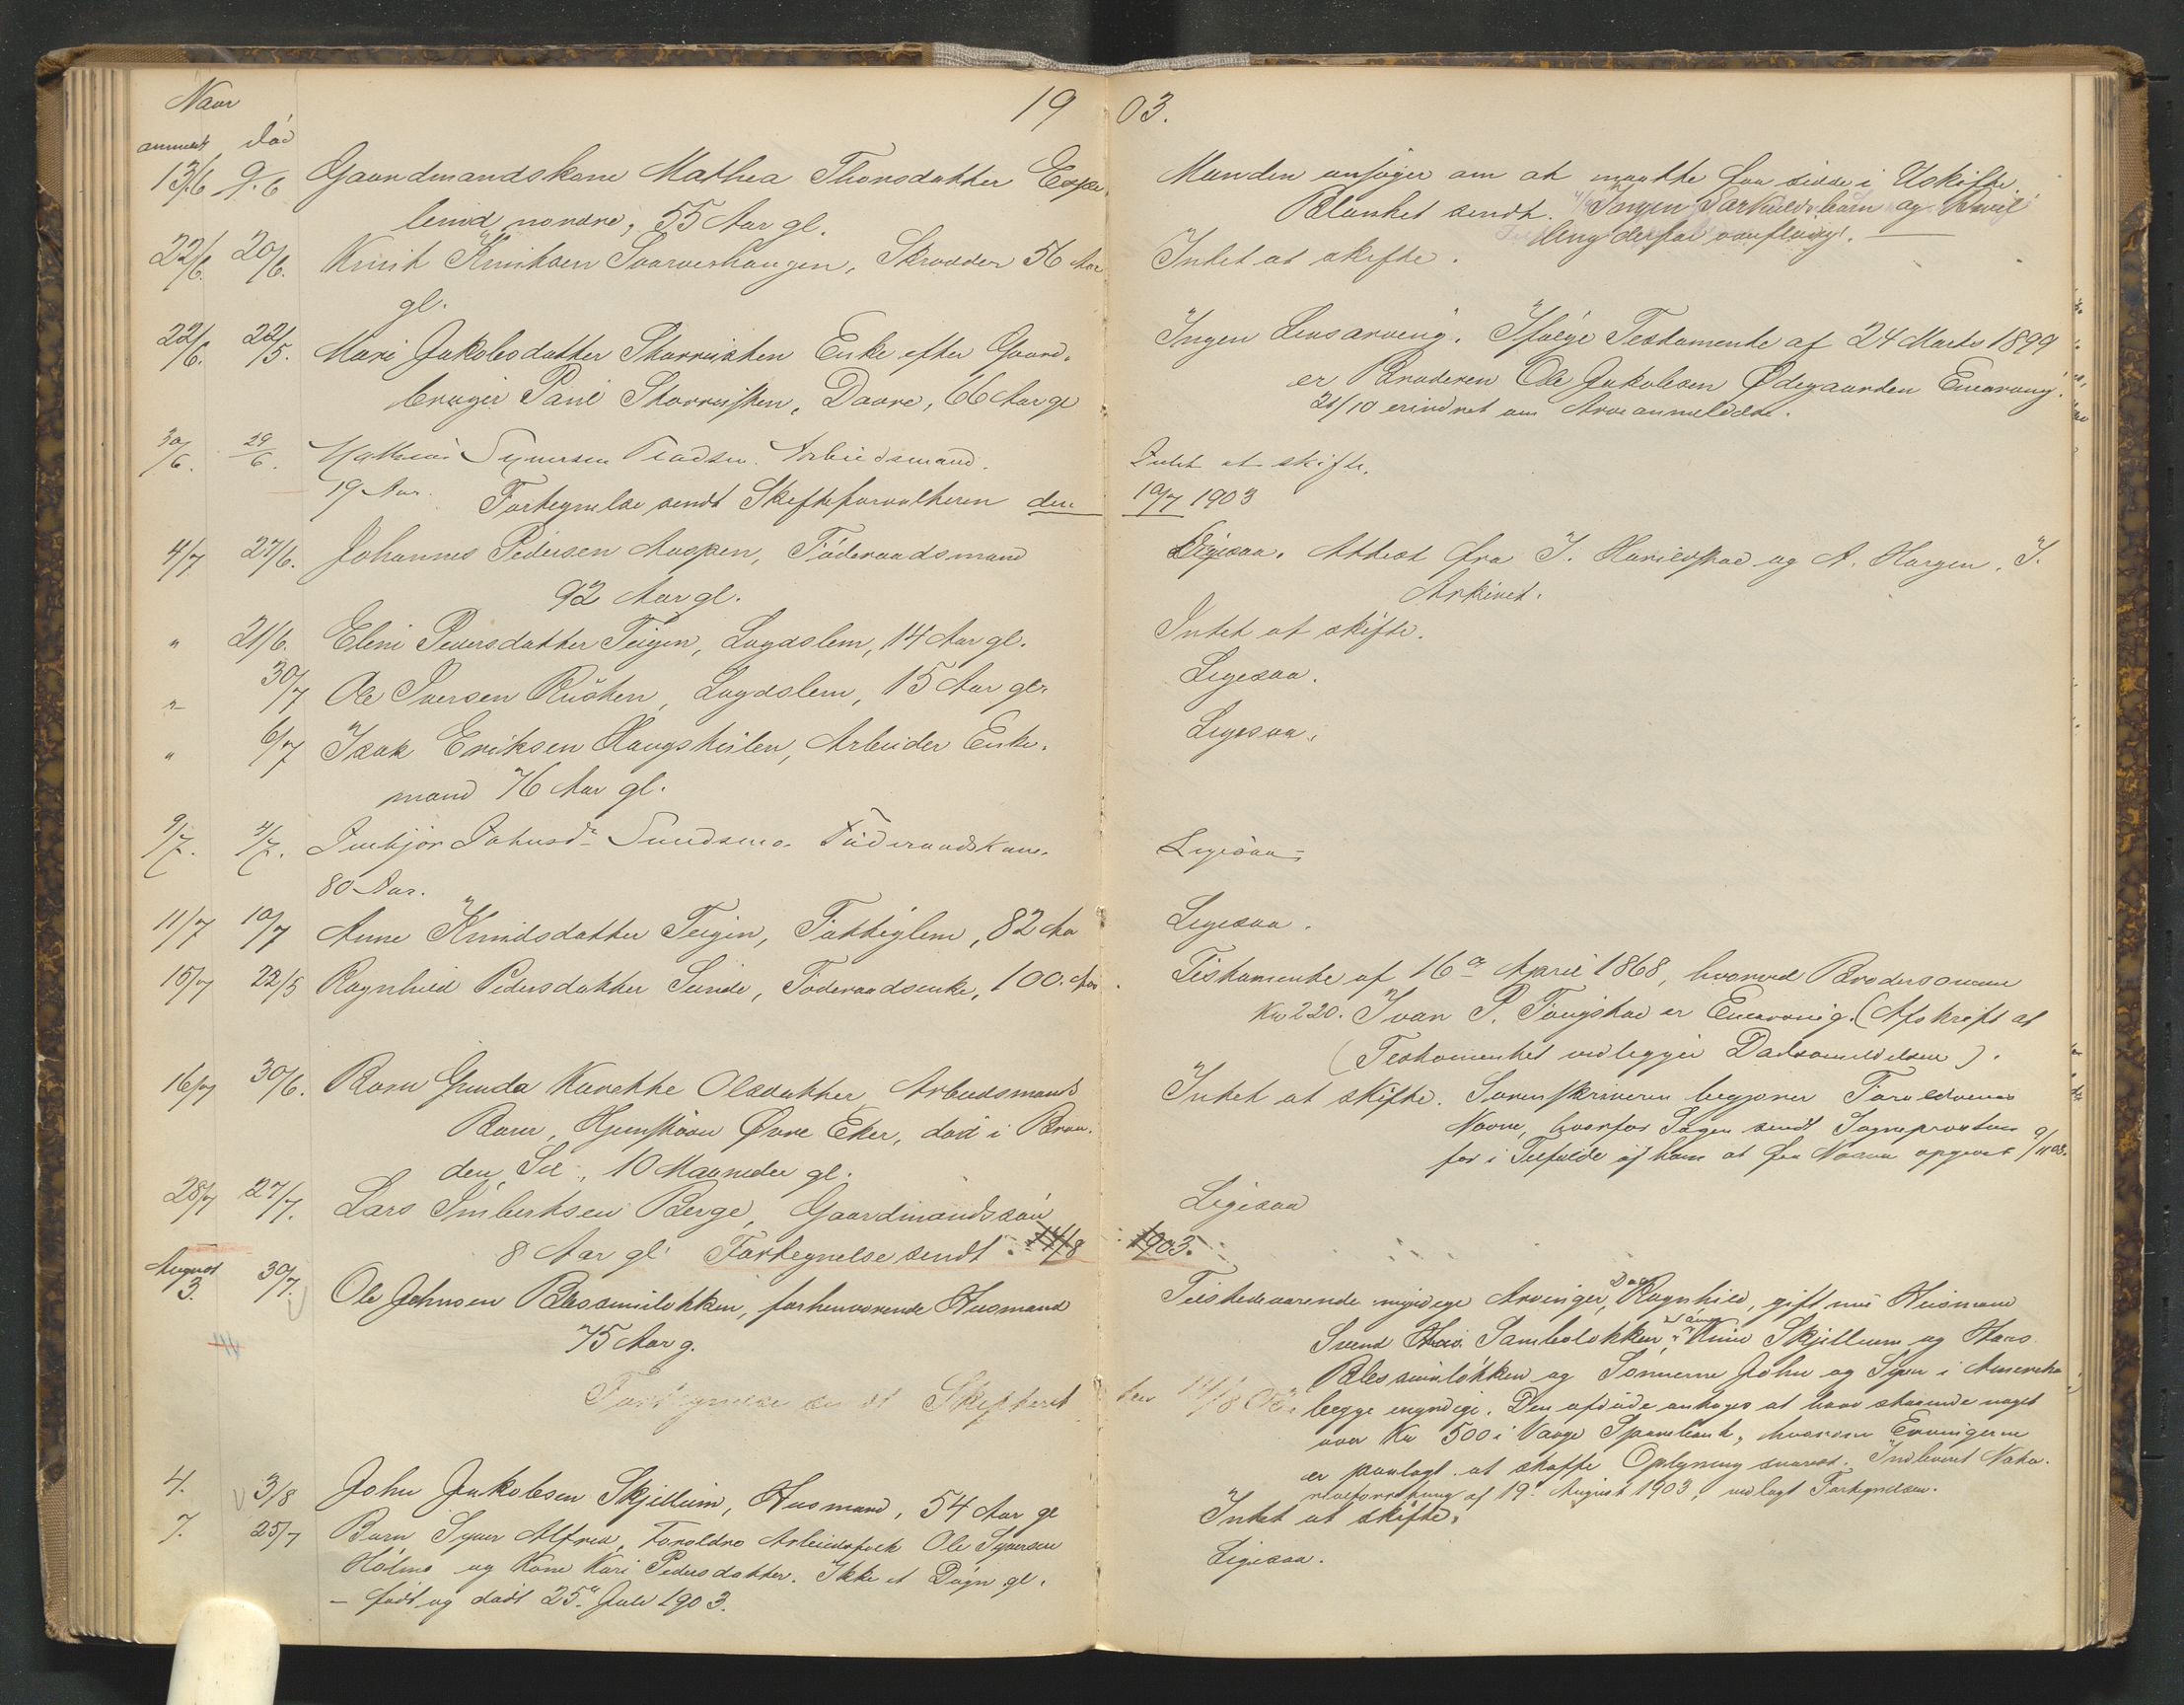 Naar
19 03.
anmeldt død
13/6 9/6 Gaardmandskone Mathea Thorsdatter Espe-
lund nordre, 55 Aar gl.
Manden ansøger om at maatte faa sidde i Uskifte.
Blanket sendt. Ingen Særkuldsbørn og
derfor overflødig.
22/6. 20/6. Knut Knutsen Svarveshaugen, Skrædder 56 Aar
gl.
Intet at skifte.
22/6. 22/5. Mari Jakobsdatter Storrusten Enke efter Gaard-
bruger Paul Storrusten, Dovre, 66 Aar gl
Ingen Livsarving. Ifølge Testamente af 24 Marts 1899
er Broderen Ole Jakobsen Ødegaarden Enearving.
21/10 erindret om Arveanmeldelse.
30/6. 29/6. Mathias Syversen Arbeidsmand.
19 Aar.
Intet at skifte.
Fortegnelse sendt Skifteforvalteren den 10/7 1903
4/7 27/6. Johannes Pedersen Aaspen, Føderaadsmand
92 Aar gl.
Ligesaa. Attest fra I. Harildstad og A. Horgen. I.
Arkivet.
" 21/6. Eline Iversdatter Teigen, Lægdslem, 14 Aar gl.
Intet at skifte.
" 30/7 Ole Iversen Rusten, Lægdslem, 15 Aar gl.
Ligesaa.
" 6/7 Isak Eriksen Haugskilen, Arbeider Enke-
mand 76 Aar gl.
Ligesaa.
9/7. 4/7. Imbjør Johnsd. Sundsmo. Føderaadskone.
80 Aar.
Ligesaa.
11/7 10/7 Anne Knudsdatter Teigen, Fattiglem, 82 Aar
Ligesaa.
15/7 22/5 Ragnhild Pedersdatter Sunde, Føderaadsenke, 100 Aar.
Testamente af 16de April 1868, hvorved Brodersønnen
Kr 220. Ivar P. er Enearving. (Afskrift af
(Testamentet vedlegges Dødsanmeldelsen).
16/7 30/6. Barn Gunda Karette Olsdatter Arbeidsmands
Barn, Øvre Eker, død i Bræn-
den, Sel, 10 Maaneder gl.
Intet at skifte. Sorenskriveren begjærer Forældrenes
Navne, hvorfor Sagen sendt Sogneprosten
for i Tilfælde af ham at faa Navne opgivet 9/11 03.
28/7 27/7. Lars Imbertsen Berge, Gaardmandssøn
8 Aar gl. Fortegnelse sendt 14/8 1903.
Ligesaa
August
3. 30/7. Ole Johnsen Blessumløkken, forhenværende Husmand
75 Aar g.
Tilstedeværende myndige Arvinger, Ragnhild, gift med Husmand
Svend Samboløkken, Knud Skjellum og Hans
Blessumløkken og Sønnerne John og Syver i Amerika
begge myndige. Den afdøde antages at have staaende noget
over Kr 500 i Vaage Sparebank, hvorom Arvingerne
er paalagt at skaffe Oplysning snarest. Indleveret
af 19. August 1903, vedlagt Fortegnelsen.
Fortegnelse sendt Skifteret den 14/8 03.
4. 3/8 John Jakobsen Skjellum, Husmand, 54 Aar gl
Intet at skifte.
7. 25/7 Barn Syver Alfred, Forældre Arbeidsfolk Ole Syversen
Holmo og Kone Kari Pedersdatter. Ikke et Døgn gl.
– født og død 25de Juli 1903.
Ligesaa.